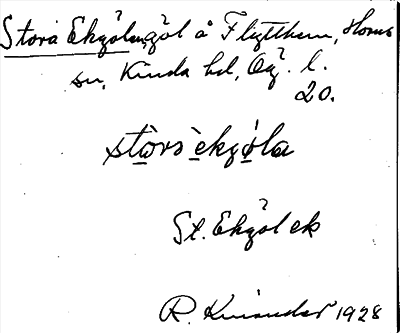 Stora Ekgöl å Flygthem, Horns
sn, Kinda hd, Ög. l.
20.
stòrs̀ èkgóla
St. Ekgöl ek
R. Kinander 1928